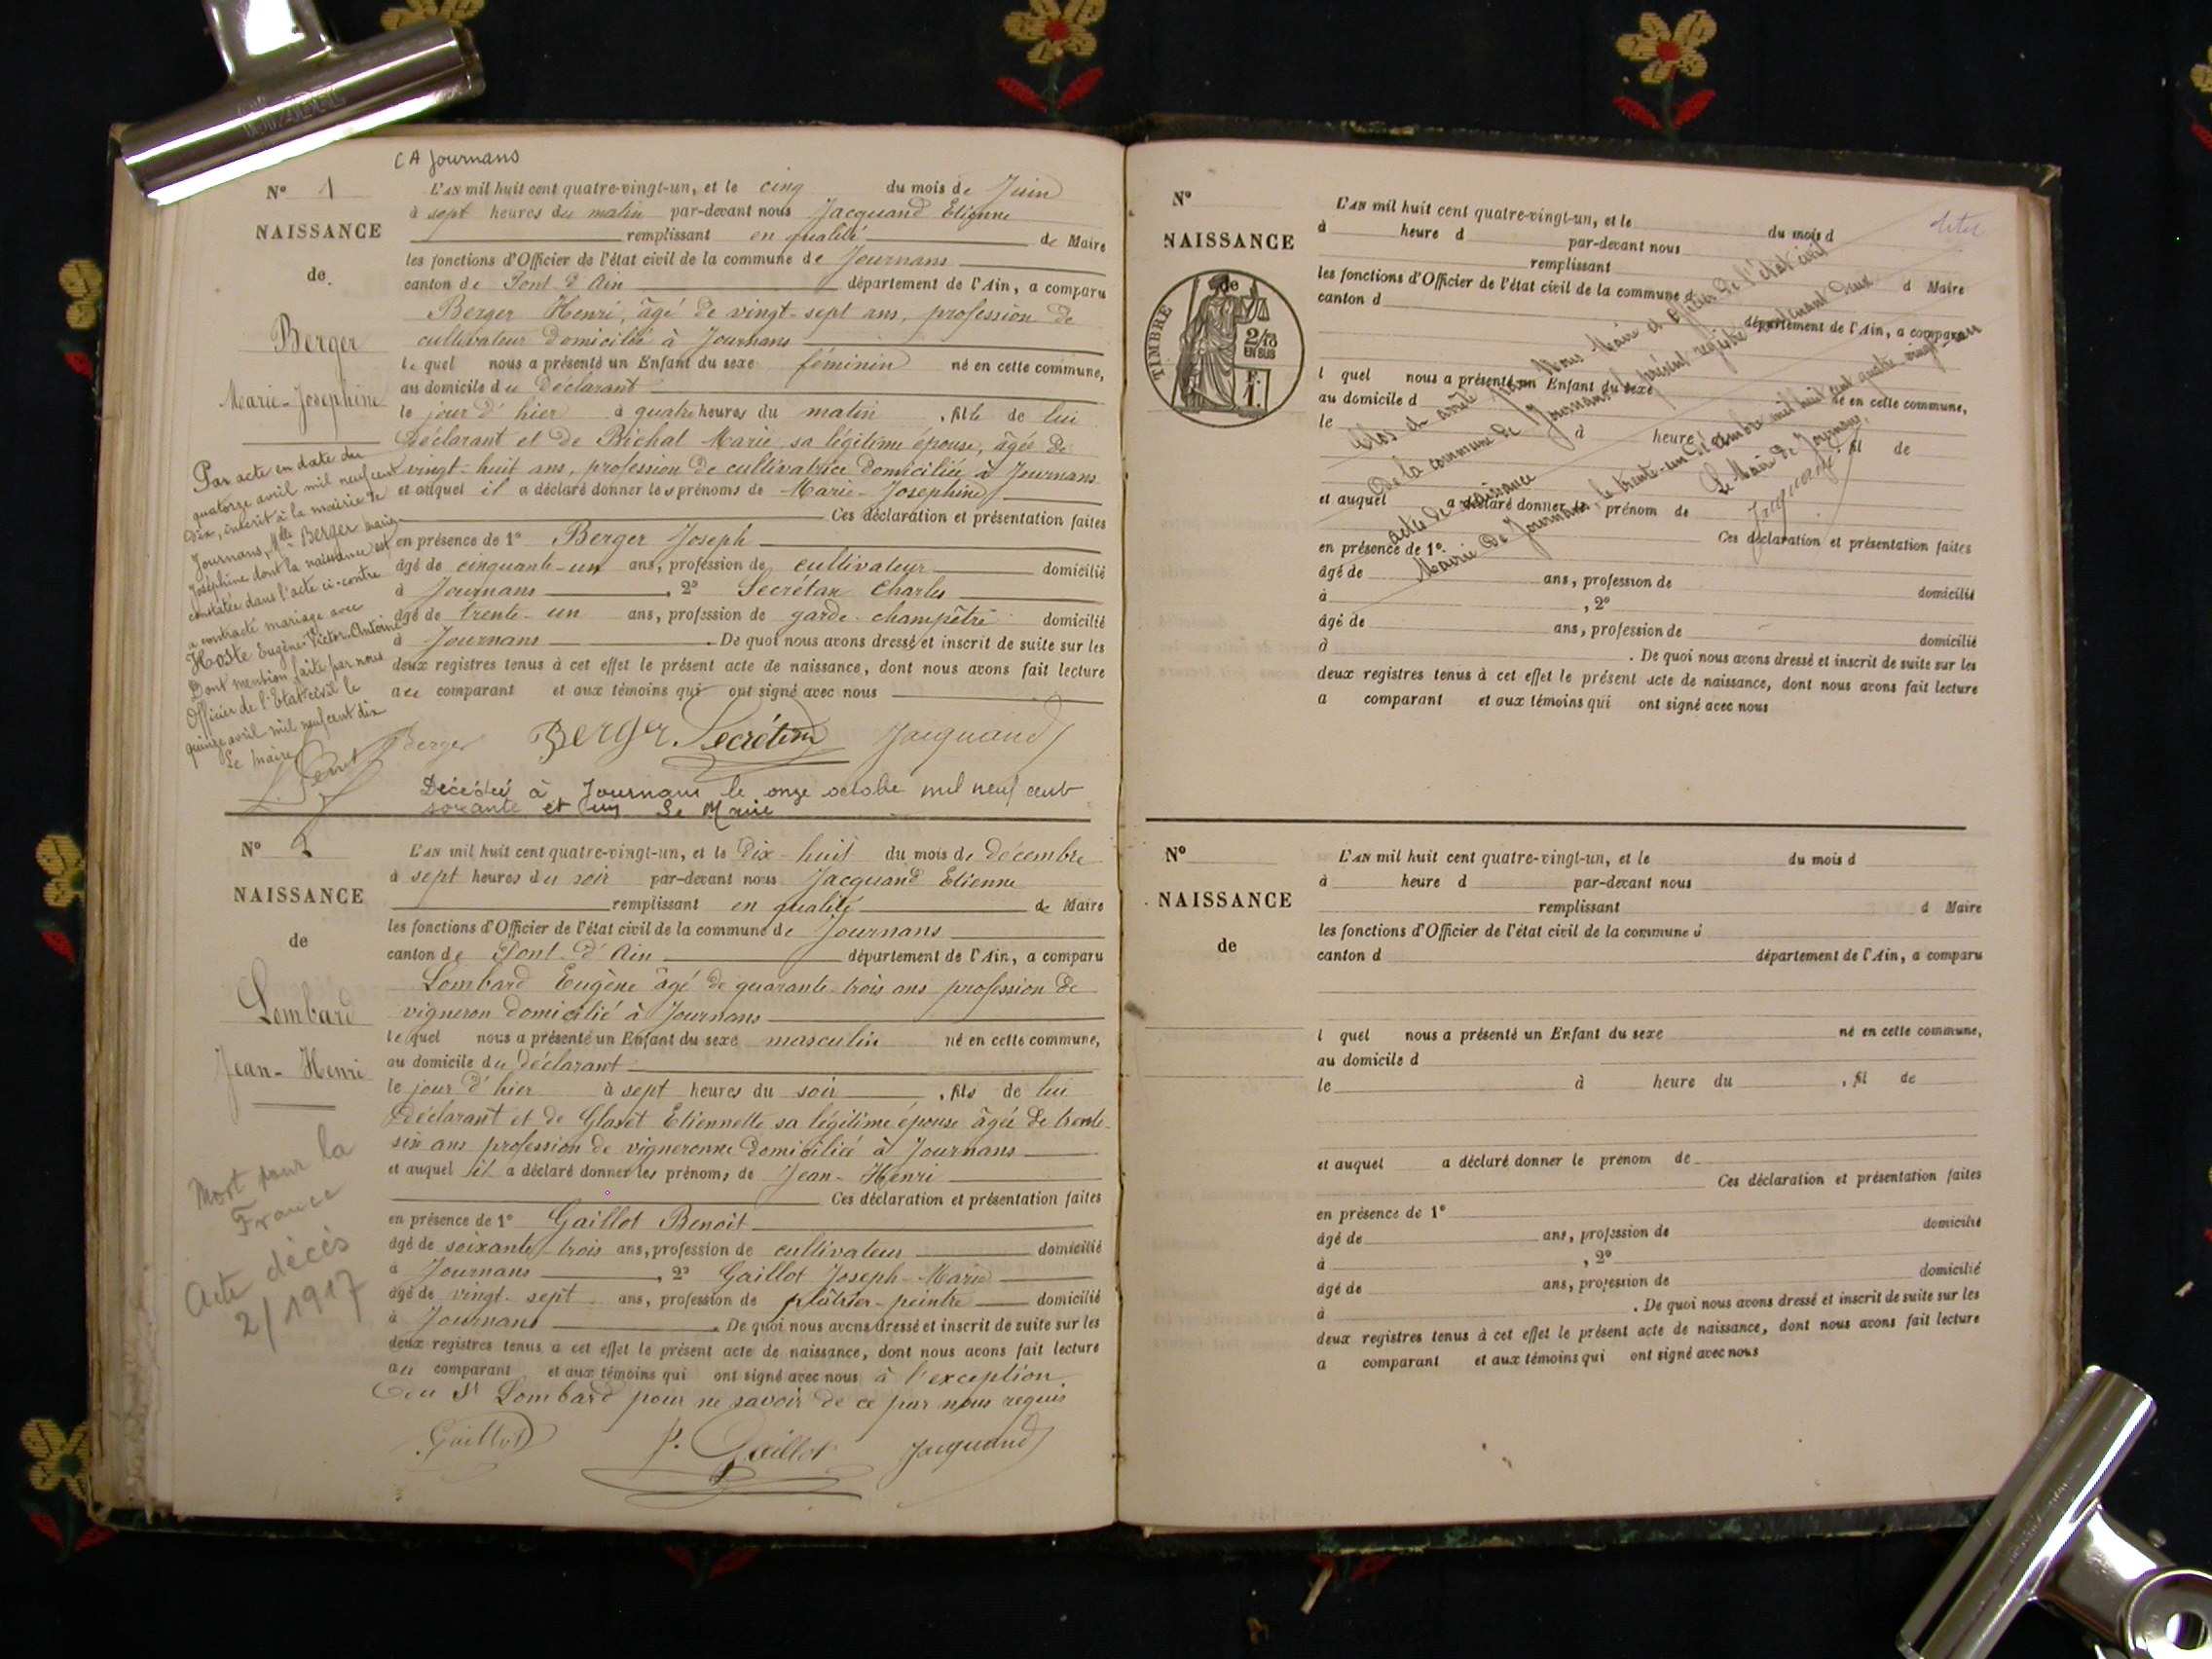 CA Journans
N° 1
NAISSANCE
de
Berger
Marie-Josephine
L'AN mil huit cent quatre-vingt-un, et le cinq du mois de Juin
à sept heures du matin par-devant nous Jacquand Etienne
remplissant en qualité de Maire
les fonctions d'Officier de l'état civil de la commune de Journans
canton de Pont d'Ain département de l'Ain, a comparu
Berger Henri, âgé de vingt-sept ans, profession de
cultivateur domicilié à Journans
lequel nous a présenté un Enfant du sexe féminin né en cette commune,
au domicile du déclarant
le jour d'hier à quatre heures du matin, fille de lui
déclarant et de Bichat Marie sa légitime épouse, âgée de
vingt-huit ans, profession de cultivatrice domiciliée à Journans
et auquel il a déclaré donner les prénoms de Marie-Josephine
Ces déclaration et présentation faites
en présence de 1° Berger Joseph
âgé de cinquante-un ans, profession de cultivateur domicilié
à Journans, 2° Secrétan Charles
âgé de trente-un ans, profession de garde-champêtre domicilié
à Journans. De quoi nous avons dressé et inscrit de suite sur les
deux registres tenus à cet effet le présent acte de naissance, dont nous avons fait lecture
au comparant et aux témoins qui ont signé avec nous
Berger Berger Secrétan Jacquand
Décédée à Journans le onze octobre mil neuf cent
soixante et un Le Maire
Par acte en date du
quatorze avril mil neuf cent
dix, inscrit à la mairie de
Journans, Mlle Berger Marie
Joséphine dont la naissance est
constatée dans l'acte ci-contre
a contracté mariage avec
Hoste Eugène Victor Antoine
Dont mention faite par nous
Officier de l'Etat civil le
quinze avril mil neuf cent dix
Le Maire
N° 2
NAISSANCE
de
Lombard
Jean-Henri
L'AN mil huit cent quatre-vingt-un, et le Dix-huit du mois de décembre
à sept heures du soir par-devant nous Jacquand Etienne
remplissant en qualité de Maire
les fonctions d'Officier de l'état civil de la commune de Journans
canton de Pont-d'Ain département de l'Ain, a comparu
Lombard Eugène âgé de quarante-trois ans profession de
vigneron domicilié à Journans
lequel nous a présenté un Enfant du sexe masculin né en cette commune,
au domicile du déclarant
le jour d'hier à sept heures du soir, fils de lui
déclarant et de Etiennette sa légitime épouse âgée de trente-
six ans profession de vigneronne domiciliée à Journans
et auquel il a déclaré donner les prénoms de Jean-Henri
Ces déclaration et présentation faites
en présence de 1° Gaillot Benoit
âgé de soixante-trois ans, profession de cultivateur domicilié
à Journans, 2° Gaillot Joseph-Marie
âgé de vingt-sept ans, profession de plâtrier-peintre domicilié
à Journans. De quoi nous avons dressé et inscrit de suite sur les
deux registres tenus à cet effet le présent acte de naissance, dont nous avons fait lecture
au comparant et aux témoins qui ont signé avec nous à l'exception
du St Lombard pour ne savoir de ce par nous requis
Gaillot J. Gaillot Jacquand
Mort pour la
France
Acte décès
2/1917
N°
NAISSANCE
de
TIMBRE
2/10
EN SUS
F.
1.
L'AN mil huit cent quatre-vingt-un, et le du mois d
à heure d par-devant nous
remplissant d Maire
les fonctions d'Officier de l'état civil de la commune d
canton d département de l'Ain, a comparu
l quel nous a présenté un Enfant du sexe né en cette commune,
au domicile d
le à heure , fil de
et auquel a déclaré donner le prénom de
Ces déclaration et présentation faites
en présence de 1°
âgé de ans, profession de domicilié
à , 2°
âgé de ans, profession de domicilié
à . De quoi nous avons dressé et inscrit de suite sur les
deux registres tenus à cet effet le présent acte de naissance, dont nous avons fait lecture
a comparant et aux témoins qui ont signé avec nous
Clos et arrêté par Nous Maire et Officier de l'état civil
de la commune de Journans le présent registre contenant deux
actes de naissance
Mairie de Journans, le trente-un décembre mil huit cent quatre vingt-un
Le Maire de Journans,
Jacquand
N°
NAISSANCE
de
L'AN mil huit cent quatre-vingt-un, et le du mois d
à heure d par-devant nous
remplissant d Maire
les fonctions d'Officier de l'état civil de la commune d
canton d département de l'Ain, a comparu
l quel nous a présenté un Enfant du sexe né en cette commune,
au domicile d
le à heure du , fil de
et auquel a déclaré donner le prénom de
Ces déclaration et présentation faites
en présence de 1°
âgé de ans, profession de domicilié
à , 2°
âgé de ans, profession de domicilié
à . De quoi nous avons dressé et inscrit de suite sur les
deux registres tenus à cet effet le présent acte de naissance, dont nous avons fait lecture
a comparant et aux témoins qui ont signé avec nous